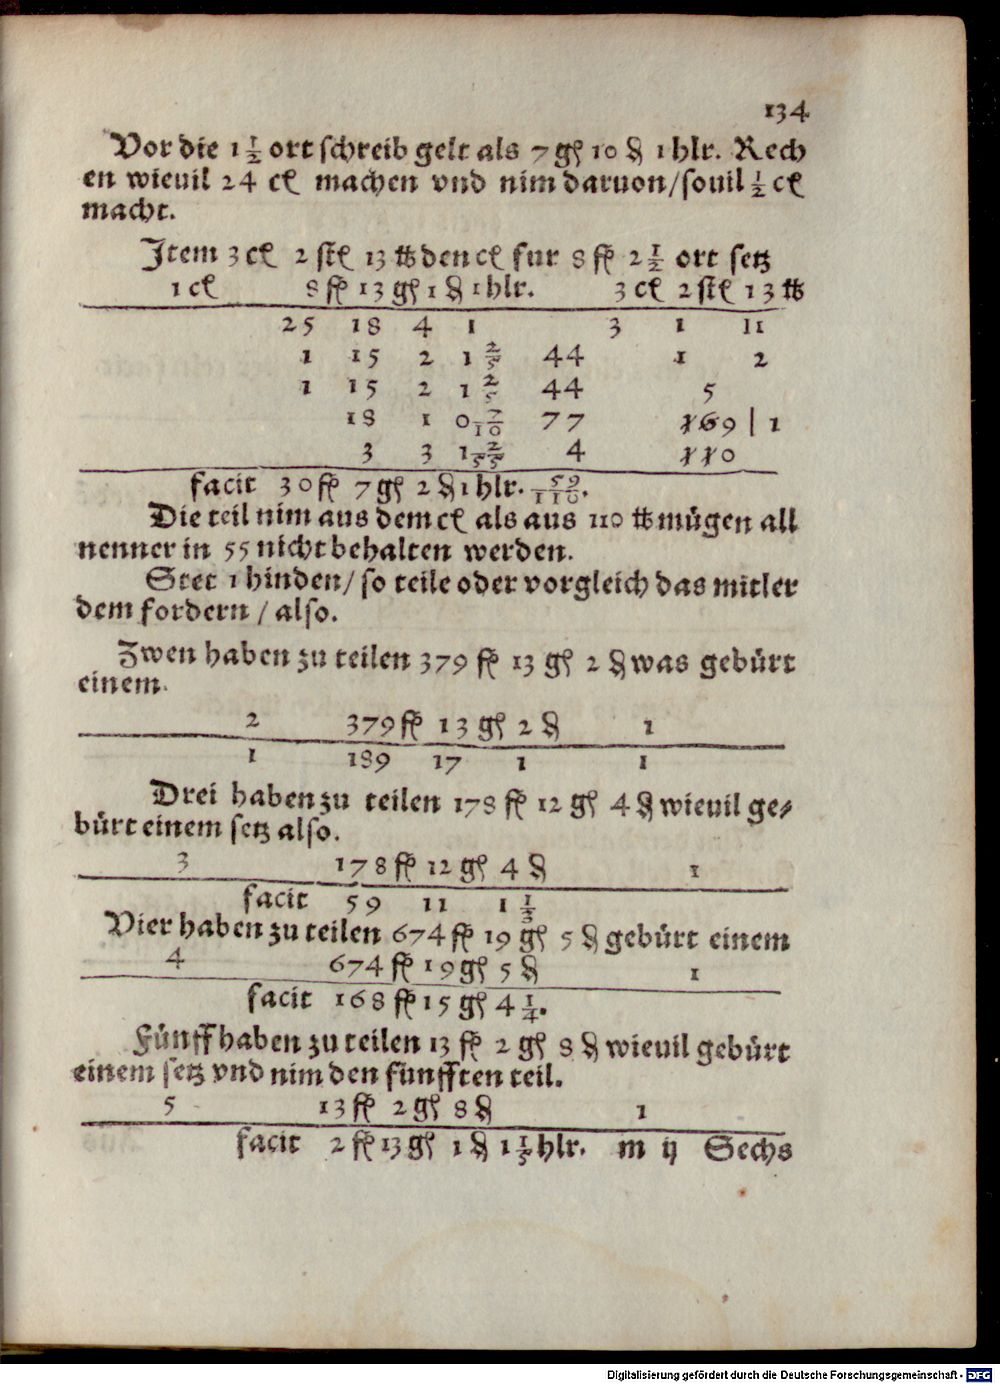 134
Vor die 1 1/2 ort schreib gelt als 7 gl 10 ₰ 1 hlr. Rech
en wieuil 24 cl machen vnd nim daruon/souil 1/2 cl
macht.
Item 3 cl 2 stl 13 ℔ den cl fur 8 fl 2 1/2 ort setz
1 cl 8 fl 13 gl 1 ₰ 1 hlr. 3 cl 2 stl 13 ℔
25 18 4 1 3 1 11
1 15 2 1 2/5 44 1 2
1 15 2 1 2/5 44 5
18 1 0 7/10 77 169 | 1
3 3 1 2/55 4 110
facit 30 fl 7 gl 2 ₰ 1 hlr. 59/110.
Die teil nim aus dem cl als aus 110 ℔ mügen all
nenner in 55 nicht behalten werden.
Stet 1 hinden/ so teile oder vorgleich das mitler
dem fordern / also.
Zwen haben zu teilen 379 fl 13 gl 2 ₰ was gebürt
einem.
2 379 fl 13 gl 2 ₰ 1
1 189 17 1 1
Drei haben zu teilen 178 fl 12 gl 4 ₰ wieuil ge⸗
bürt einem setz also.
3 178 fl 12 gl 4 ₰ 1
facit 59 11 1 1/3
Vier haben zu teilen 674 fl 19 gl 5 ₰ gebürt einem
4 674 fl 19 gl 5 ₰ 1
facit 168 fl 15 gl 4 1/4.
Fünff haben zu teilen 13 fl 2 gl 8 ₰ wieuil gebürt
einem setz vnd nim den funfften teil.
5 13 fl 2 gl 8 ₰ 1
facit 2 fl 13 gl 1 ₰ 1 1/5 hlr. m ij Sechs
Digitalisierung gefördert durch die Deutsche Forschungsgemeinschaft - DFG